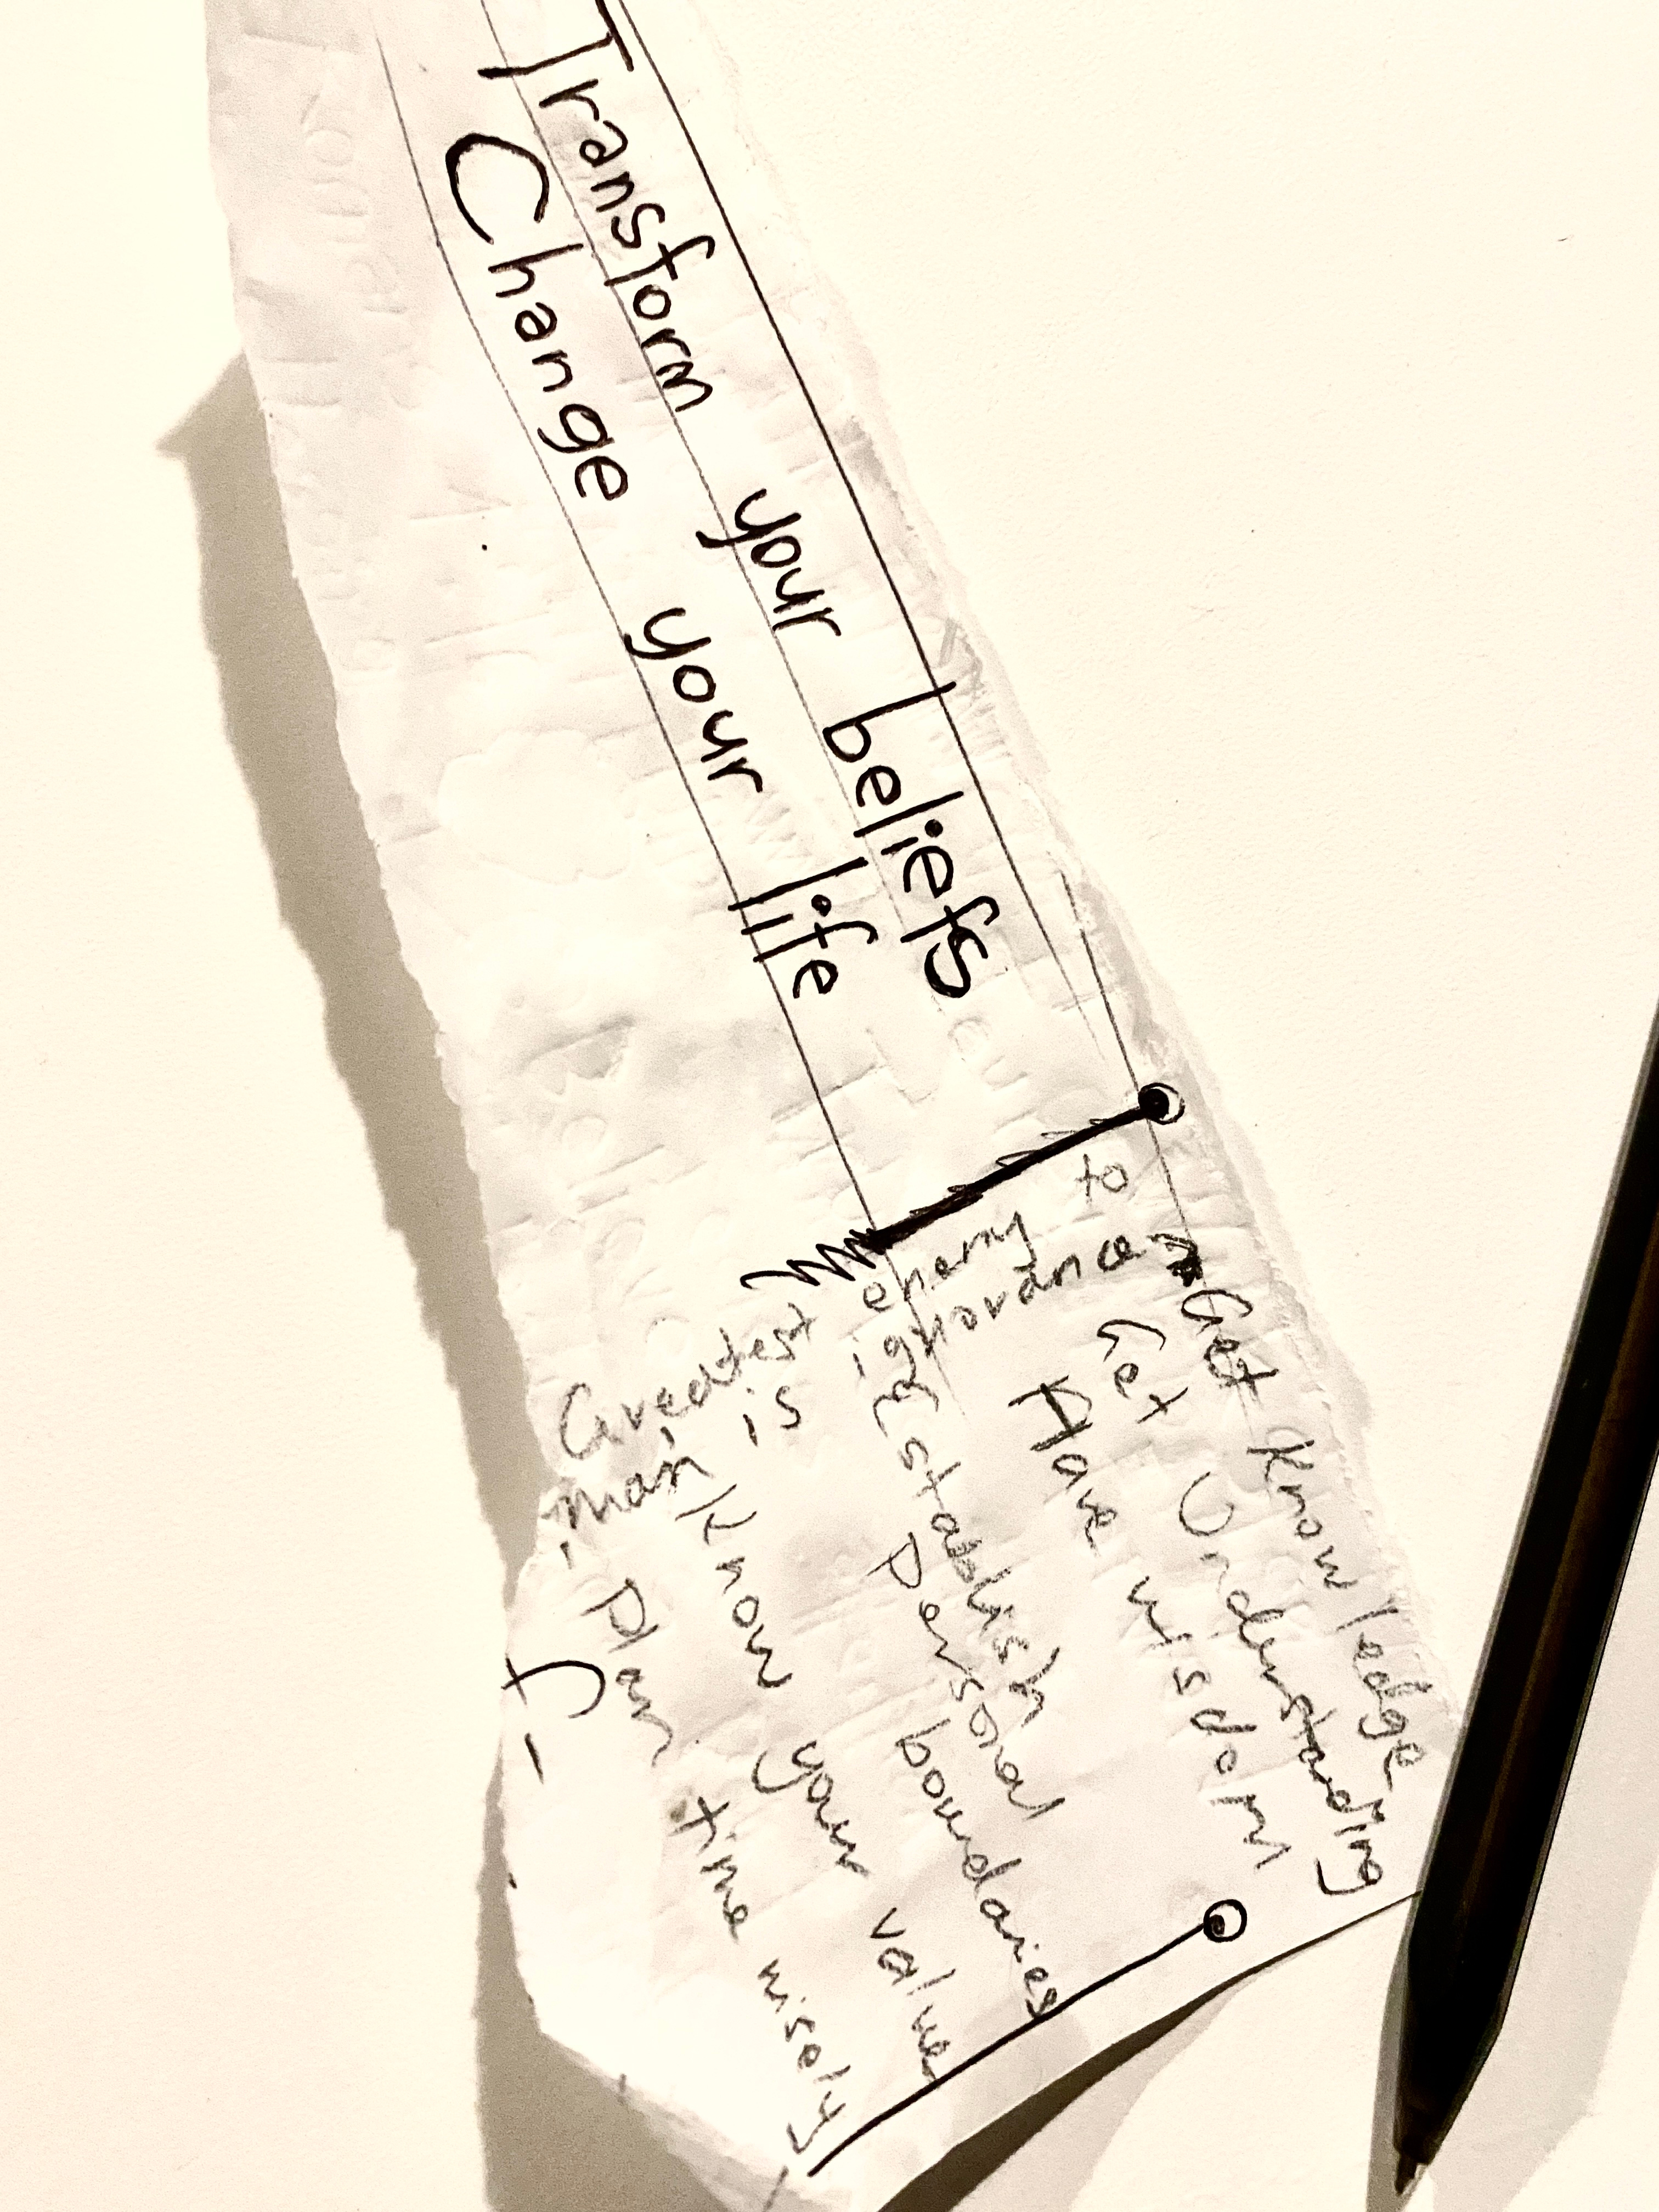 Transform your beliefs
Change your life
Greatest enemy to
man is ignorance
Get Knowledge
Get Understanding
Have wisdom
Establish
Personal boundaries
Know your value
- Plan time wisely